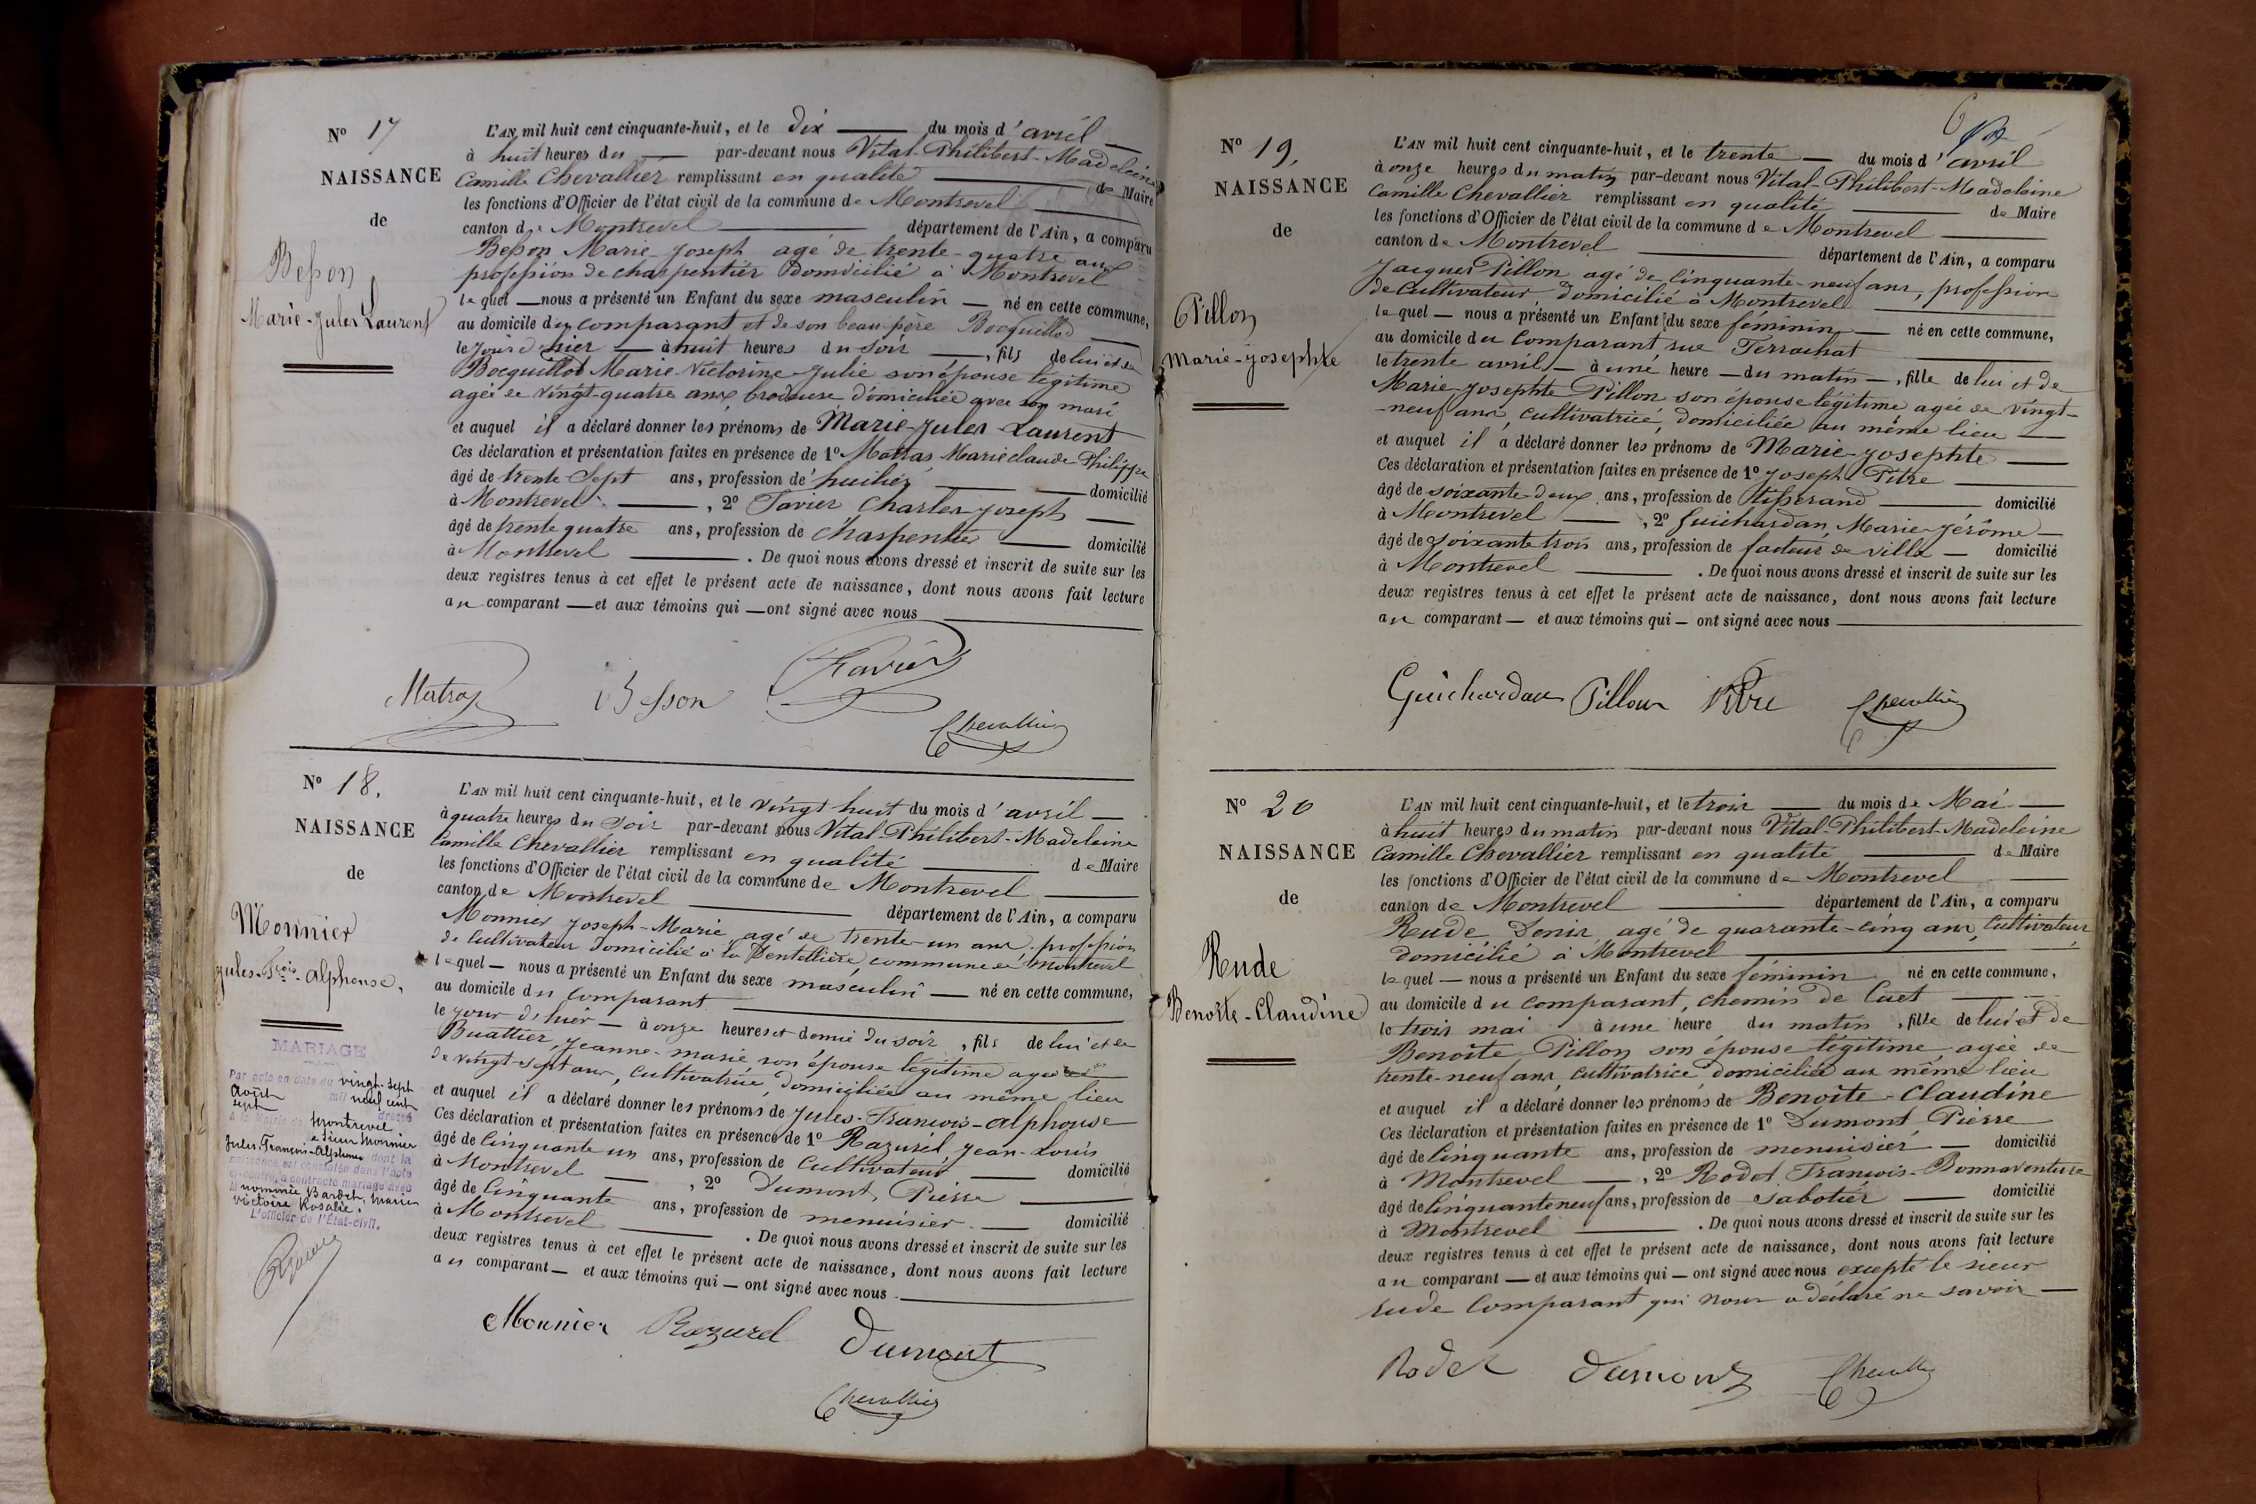 N° 17
NAISSANCE
de
Besson
Marie-Jules Laurent
L'AN mil huit cent cinquante-huit, et le dix du mois d'avril
à huit heures du par-devant nous Vital-Philibert-Madeleine
Camille Chevallier remplissant en qualité de Maire
les fonctions d'Officier de l'état civil de la commune de Montrevel
canton de Montrevel département de l'Ain, a comparu
Besson Marie-Joseph agé de trente-quatre ans
profession de charpentier domicilié à Montrevel
lequel nous a présenté un Enfant du sexe masculin né en cette commune,
au domicile du comparant et de son beau-père Bocquillod
le jour d'hier à huit heures du soir, fils de lui et de
Bocquillod Marie Victorine-Julie son épouse légitime
agée de vingt-quatre ans brodeuse domiciliée avec son mari
et auquel il a déclaré donner les prénoms de Marie-Jules-Laurent
Ces déclaration et présentation faites en présence de 1° Matras Marie claude Philippe
âgé de trente Sept ans, profession de huilier domicilié
à Montrevel, 2° Favier Charles Joseph
âgé de trente quatre ans, profession de charpentier domicilié
à Montrevel. De quoi nous avons dressé et inscrit de suite sur les
deux registres tenus à cet effet le présent acte de naissance, dont nous avons fait lecture
au comparant et aux témoins qui ont signé avec nous
Matras Besson Favier
Chevallier
N° 18.
NAISSANCE
de
Monnier
Jules-Fcois-Alphonse,
MARIAGE
Par acte en date du vingt-sept
Août mil neuf cent
sept dressé
à la mairie de Montrevel
le sieur Monnier
Jules-François-Alphonse dont la
naissance est constatée dans l'acte
ci-contre, a contracté mariage avec
la nommée Bardet, Marie
Victoire Rosalie.
L'officier de l'État-civil,
L'AN mil huit cent cinquante-huit, et le vingt huit du mois d'avril
à quatre heures du soir par-devant nous Vital-Philibert-Madeleine
Camille Chevallier remplissant en qualité de Maire
les fonctions d'Officier de l'état civil de la commune de Montrevel
canton de Montrevel département de l'Ain, a comparu
Monnier Joseph-Marie agé de trente-un ans profession
de Cultivateur domicilié à la Dentellière commune de Montrevel
lequel nous a présenté un Enfant du sexe masculin né en cette commune,
au domicile du comparant
le jour d'hier à onze heures et demie du soir, fils de lui et de
Buattier, Jeanne-marie, son épouse légitime agée
de vingt-sept ans, cultivatrice, domiciliée au même lieu
et auquel il a déclaré donner les prénoms de Jules-François-Alphonse
Ces déclaration et présentation faites en présence de 1° Razurel, Jean-Louis
âgé de Cinquante un ans, profession de Cultivateur domicilié
à Montrevel, 2° Dumont, Pierre
âgé de Cinquante ans, profession de menuisier domicilié
à Montrevel. De quoi nous avons dressé et inscrit de suite sur les
deux registres tenus à cet effet le présent acte de naissance, dont nous avons fait lecture
au comparant et aux témoins qui ont signé avec nous
Monnier Razurel Dumont
Chevallier
6
N° 19,
NAISSANCE
de
Pillon
Marie-Josephte
L'AN mil huit cent cinquante-huit, et le trente du mois d'avril
à onze heures du matin par-devant nous Vital-Philibert-Madeleine
Camille Chevallier remplissant en qualité de Maire
les fonctions d'Officier de l'état civil de la commune de Montrevel
canton de Montrevel département de l'Ain, a comparu
Jacques Pillon agé de Cinquante-neuf ans, profession
de Cultivateur domicilié à Montrevel
lequel nous a présenté un Enfant du sexe féminin né en cette commune,
au domicile du comparant rue Terrachat
le trente avril à une heure du matin, fille de lui et de
Marie-Josephte Pillon son épouse légitime agée de vingt-
-neuf ans, cultivatrice, domiciliée au même lieu
et auquel il a déclaré donner les prénoms de Marie-Josephte
Ces déclaration et présentation faites en présence de 1° Joseph Pitre
âgé de soixante-deux ans, profession de tisserand domicilié
à Montrevel, 2° Guichardan, Marie-Jérôme
âgé de soixante trois ans, profession de facteur de ville domicilié
à Montrevel. De quoi nous avons dressé et inscrit de suite sur les
deux registres tenus à cet effet le présent acte de naissance, dont nous avons fait lecture
au comparant et aux témoins qui ont signé avec nous
Guichardan Pillon Pitre Chevallier
N° 20
NAISSANCE
de
Rude
Benoite-Claudine
L'AN mil huit cent cinquante-huit, et le trois du mois de Mai
à huit heures du matin par-devant nous Vital-Philibert-Madeleine
Camille Chevallier remplissant en qualité de Maire
les fonctions d'Officier de l'état civil de la commune de Montrevel
canton de Montrevel département de l'Ain, a comparu
Rude Denis agé de quarante-cinq ans, Cultivateur
domicilié à Montrevel
lequel nous a présenté un Enfant du sexe féminin né en cette commune,
au domicile du comparant, chemin de Cuet
le trois mai à une heure du matin, fille de lui et de
Benoite Pillon son épouse légitime agée de
trente-neuf ans, cultivatrice domiciliée au même lieu
et auquel il a déclaré donner les prénoms de Benoite-Claudine
Ces déclaration et présentation faites en présence de 1° Dumont Pierre
âgé de Cinquante ans, profession de menuisier domicilié
à Montrevel, 2° Rodet François-Bonnaventure
âgé de Cinquante neuf ans, profession de sabotier domicilié
à Montrevel. De quoi nous avons dressé et inscrit de suite sur les
deux registres tenus à cet effet le présent acte de naissance, dont nous avons fait lecture
au comparant et aux témoins qui ont signé avec nous excepté le sieur
rude Comparant qui nous a déclaré ne savoir
Rodet Dumont Chevallier